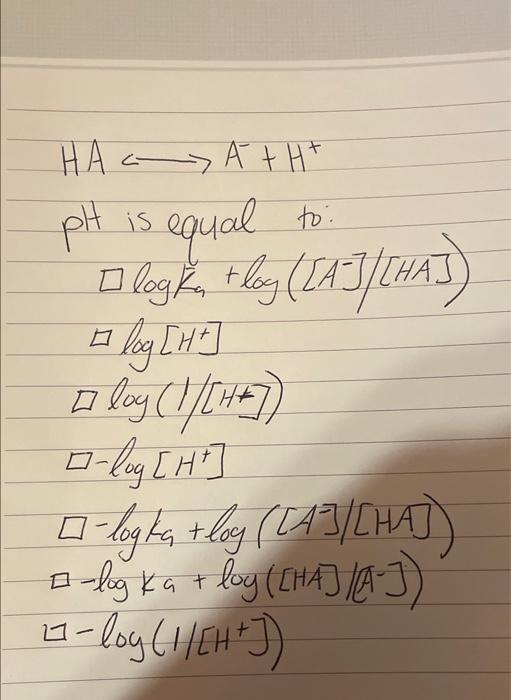 HA ⟷ A⁻ + H⁺
pH is equal to:
□ log Ka + log ([A⁻]/[HA])
□ log [H⁺]
□ log (1/[H⁺])
□ -log [H⁺]
□ -log ka + log ([A⁻]/[HA])
□ -log Ka + log ([HA]/[A⁻])
□ -log (1/[H⁺])